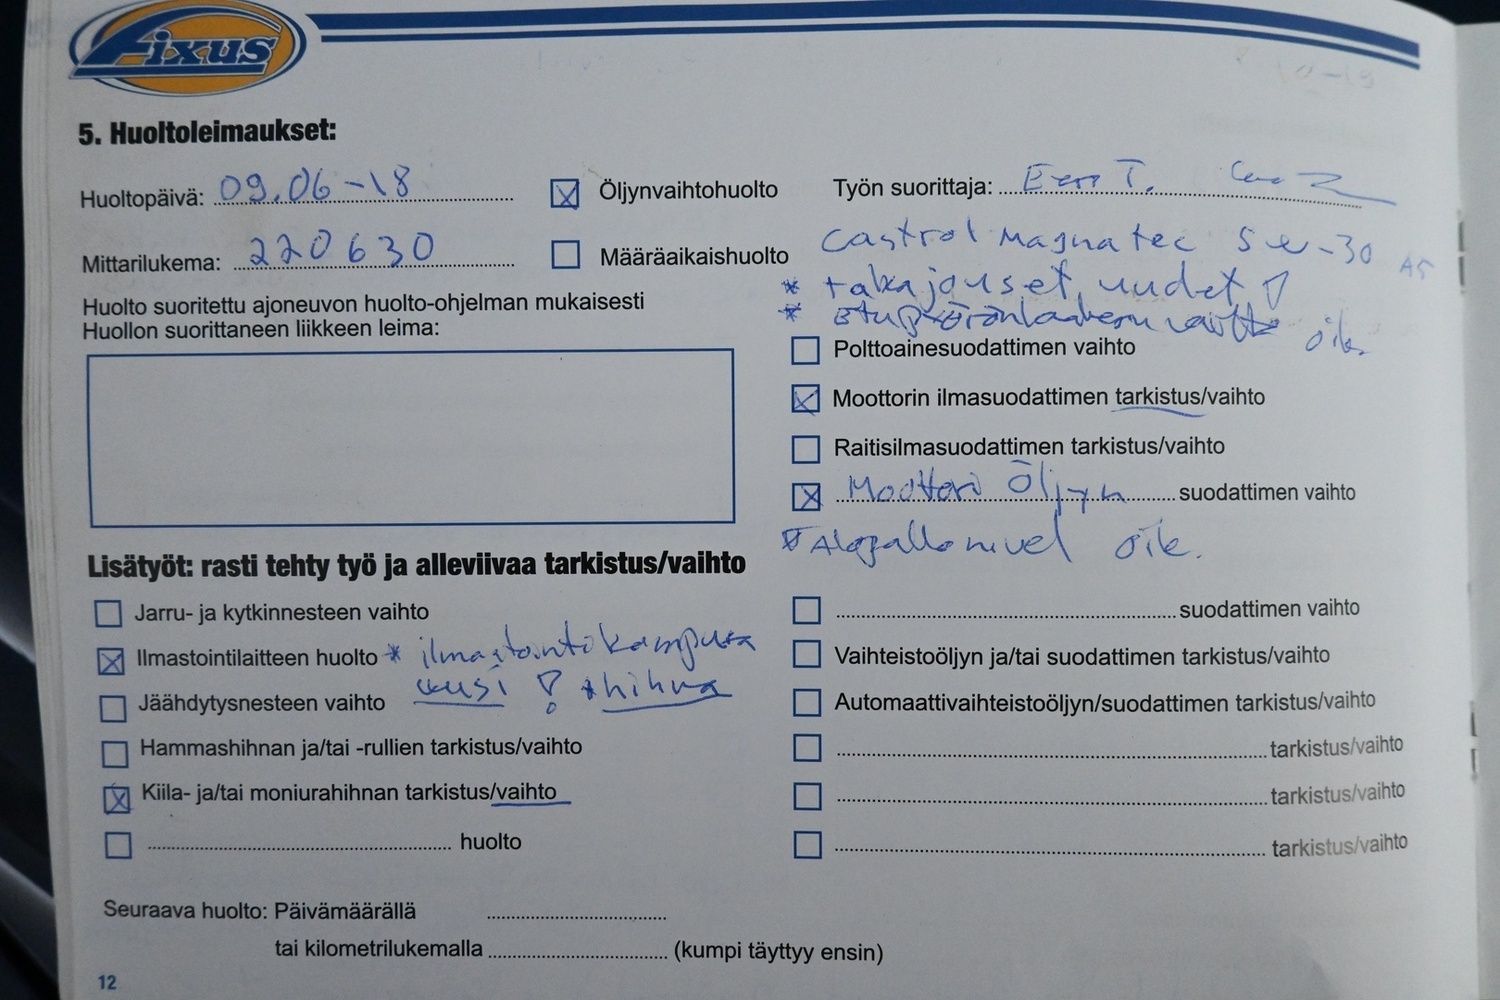 Fixus
5. Huoltoleimaukset:
Huoltopäivä: 09.06-18
Öljynvaihtohuolto
Työn suorittaja: Eero T.
Mittarilukema: 220630
Määräaikaishuolto
Castrol Magnatec 5w-30 A5
* takajouset uudet!
* etupyöränlaakerin vaihto oik.
Huolto suoritettu ajoneuvon huolto-ohjelman mukaisesti
Huollon suorittaneen liikkeen leima:
Polttoainesuodattimen vaihto
Moottorin ilmasuodattimen tarkistus/vaihto
Raitisilmasuodattimen tarkistus/vaihto
Moottori Öljyn suodattimen vaihto
* Alapallonivel oik.
Lisätyöt: rasti tehty työ ja alleviivaa tarkistus/vaihto
Jarru- ja kytkinnesteen vaihto
Ilmastointilaitteen huolto * ilmastointikompura
uusi! * hihna
Jäähdytysnesteen vaihto
Hammashihnan ja/tai -rullien tarkistus/vaihto
Kiila- ja/tai moniurahihnan tarkistus/vaihto
huolto
suodattimen vaihto
Vaihteistoöljyn ja/tai suodattimen tarkistus/vaihto
Automaattivaihteistoöljyn/suodattimen tarkistus/vaihto
tarkistus/vaihto
tarkistus/vaihto
tarkistus/vaihto
Seuraava huolto: Päivämäärällä
tai kilometrilukemalla (kumpi täyttyy ensin)
12